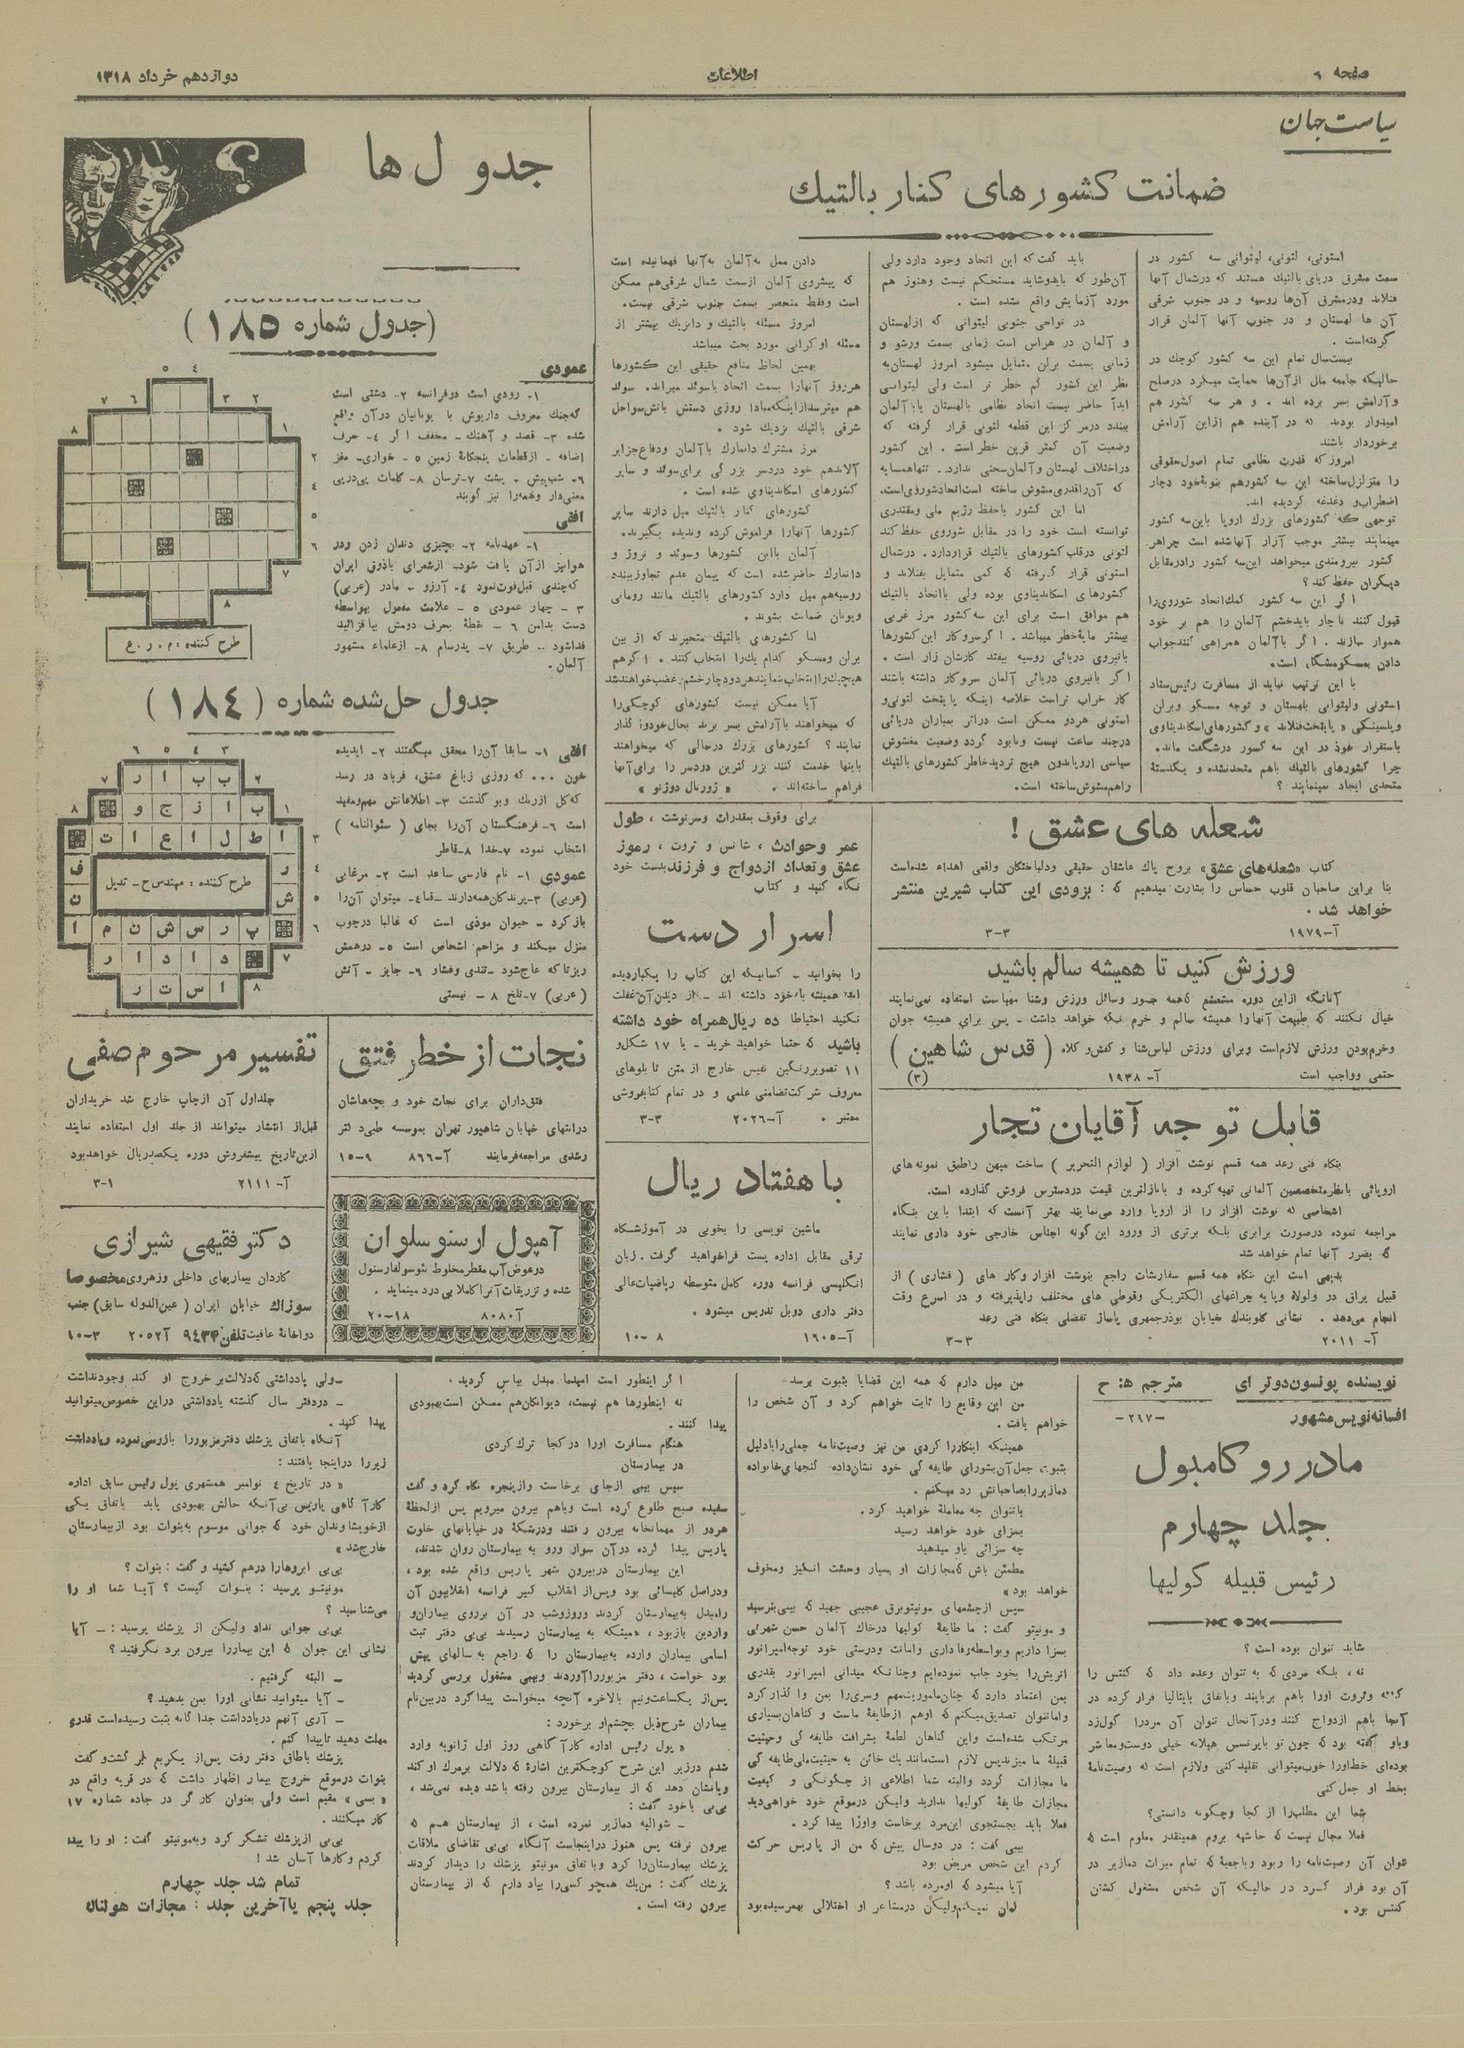 صفحه ٦
اطلاعات
دوازدهم خرداد ۱۳۱۸
سیاست جهان
ضمانت کشورهای کنار بالتیك
استونی، لتونی، لیتوانی سه کشور در
سمت مشرق دریای بالتیك هستند که درشمال آنها
فنلاند ودرمشرق آن‌ها روسیه و در جنوب شرقی
آن ها لهستان و در جنوب آنها آلمان قرار
گرفته‌است.
بیست‌سال تمام این سه کشور کوچك در
حالیکه جامعه ملل ازآن‌ها حمایت میکرد درصلح
وآرامش بسر برده اند. و هر سه کشور هم
امیدوار بودند که در آینده هم ازاین آرامش
برخوردار باشند
امروز که قدرت نظامی تمام اصول‌حقوقی
را متزلزل‌ساخته این سه کشورهم بنوبهٔ‌خود دچار
اضطراب‌و دغدغه گردیده اند.
توجهی که کشورهای بزرك اروپا باین‌سه کشور
مینمایند بیشتر موجب آزار آنهاشده است چراهر
کشور نیرومندی میخواهد این‌سه کشور رادرمقابل
دیگران حفظ کند؟
اگر این سه کشور کمك‌اتحاد شوروی‌را
قبول کنند ناچار بایدخشم آلمان را هم بر خود
هموار سازند. اگر باآلمان همراهی کنندجواب
دادن بمسکومشگل است.
با این ترتیب نباید از مسافرت رئیس‌ستاد
استونی ولیتوانی بلهستان و توجه مسکو وبرلن
وهلسینکی «پایتخت‌فنلاند» و کشورهای‌اسکاندیناوی
باستقرار نفوذ در این سه کشور درشگفت ماند.
چرا کشورهای بالتیك باهم متحدنشده و یکدستهٔ
متحدی ایجاد نمینمایند؟
باید گفت‌که این اتحاد وجود دارد ولی
آن‌طور که بایدوشاید مستحکم نیست وهنوز هم
مورد آزمایش واقع نشده است.
در نواحی جنوبی لیتوانی که ازلهستان
و آلمان در هراس است زمانی بسمت ورشو و
زمانی بسمت برلن متمایل میشود امروز لهستان‌به
نظر این کشور کم خطر تر است ولی لیتوانی
ابداً حاضر نیست اتحاد نظامی بالهستان یا باآلمان
ببندد درمرکز این قطعه لتونی قرار گرفته که
وضعیت آن کمتر قرین خطر است. این کشور
دراختلاف لهستان وآلمان‌سخنی ندارد. تنهاهمسایه
که آن‌راقدری‌مشوش ساخته است‌اتحادشوروی‌است.
اما این کشور باحفظ رژیم ملی ومقتدری
توانسته است خود را در مقابل شوروی حفظ کند
لتونی درقلب کشورهای بالتیك قراردارد. درشمال
استونی قرار گرفته که کمی متمایل بفنلاند و
کشورهای اسکاندیناوی بوده ولی بااتحاد بالتیك
هم موافق است برای این سه‌کشور مرز غربی
بیشتر مایهٔ‌خطر میباشد. اگرسروکار این کشورها
بانیروی دریائی روسیه بیفتد کارشان زار است.
اگر بانیروی دریائی آلمان سروکار داشته باشند
کار خراب تراست خلاصه اینکه پایتخت لتونی‌و
استونی هردو ممکن است دراثر بمباران دریائی
درچند ساعت نیست ونابود گردد وضعیت مغشوش
سیاسی اروپابدون هیچ تردیدخاطر کشورهای بالتیك
راهم‌مشوش‌ساخته است.
دادن ممل به‌آلمان به‌آنها فهمانیده است
که پیشروی آلمان ازسمت شمال شرقی‌هم ممکن
است وفقط منحصر بسمت جنوب شرقی نیست.
امروز مسئله بالتیك و دانزیك بیشتر از
مسئله اوکرانی مورد بحث میباشد
بهمین لحاظ منافع حقیقی این کشورها
هرروز آنهارا بسمت اتحاد باسوئد میراند. سوئد
هم میترسدازاینکه‌مبادا روزی دستش باتش‌سواحل
شرقی بالتیك نزدیك شود.
مرز مشترك دانمارك باآلمان ودفاع‌جزایر
آلاندهم خود دردسر بزرگی برای‌سوئد و سایر
کشورهای اسکاندیناوی شده است.
کشورهای کنار بالتیك میل دارند سایر
کشورها آنهارا فراموش کرده وندیده بگیرند.
آلمان بااین کشورها وسوئد و نروژ و
دانمارك حاضرشده است که پیمان عدم تجاوزببندد
روسیه‌هم میل دارد کشورهای بالتیك مانند رومانی
ویونان ضمانت بشوند.
اما کشورهای بالتیك متحیرند که از بین
برلن ومسکو کدام یك‌را انتخاب کنند. اگرهم
هیچیك‌راانتخاب‌ننمایندهردودچارخشم‌وغضب‌خواهندشد
آیا ممکن نیست کشورهای کوچکی‌را
که میخواهند باآرامش بسر برند بحال‌خودوا گذار
نمایند؟ کشورهای بزرك درحالی که میخواهند
باینها خدمت کنند بزرگترین دردسر را برای‌آنها
فراهم ساخته‌اند. «ژورنال دوژنو»
جدول ها
(جدول شماره ۱۸٥)
عمودی
۱- رودی است درفرانسه ۲- دشتی است
که‌جنك معروف داریوش با یونانیان درآن واقع
شده ۳- قصد و آهنك - مخفف اگر ٤- حرف
اضافه - ازقطعات پنجگانهٔ زمین ٥ - خواری- مغز
٦- شب‌پیش - پشت ۷-ترسان ۸- کلمات پی‌درپی
معنی‌دار وهمه‌را نیز گویند
افقی
۱- عهدنامه ۲- بچیزی دندان زدن ودر
هوانیز ازآن یافت شود- ازشعرای باذوق ایران
که‌چندی قبل‌فوت‌نمود ٤- آرزو - مادر (عربی)
۳ - چهار عمودی ٥ - علامت مفعول بواسطه
دست بدامن ٦ - نقطهٔ بحرف دومش بیافزائید
فداشود.. طریق ۷- پدرسام ۸- ازعلماء مشهور
آلمان.
طرح کننده : م . ر . ع
جدول حل‌شده شماره (۱۸٤)
افقی ۱- سابقا آن‌را محقق میگفتند ۲- ایدیده
خون ... که روزی زباغ عشق، فریاد در رسد
که‌گل ازرنك وبو گذشت ۳- اطلاعاتش مهم‌ومفید
است ٦- فرهنگستان آن‌را بجای (سئوالنامه)
انتخاب نموده ۷-خدا ۸-قاطر
عمودی ۱- نام فارسی ساعد است ۲- مرغابی
(عربی) ۳-پرندگان‌همه‌دارند -قبا٤- میتوان آن‌را
بازکرد - حیوان موذی است که غالبا درچوب
منزل میکند و مزاحم اشخاص است ٥- درهمش
ریزتاکه عاج‌شود -تندی وفشار ٦- جایز - آتش
(عربی) ۷-تلخ ۸ - نیستی
طرح کننده : مهندس ح- تدیل
شعله های عشق !
کتاب «شعله‌های عشق» بروح پاك عاشقان حقیقی ودلباختگان واقعی اهداء شده‌است
بنا براین صاحبان قلوب حساس را بشارت میدهیم که : بزودی این کتاب شیرین منتشر
خواهد شد.
آ-۱۹۷۹ ۳-۳
ورزش کنید تا همیشه سالم باشید
آنانکه ازاین دوره مشعشع که‌همه جور وسائل ورزش وشنا مهیاست استفاده نمی‌نمایند
خیال نکنند که طبیعت آنهارا همیشه سالم و خرم نگه خواهد داشت - پس برای همیشه جوان
وخرم‌بودن ورزش لازم‌است وبرای ورزش لباس‌شنا و کفش‌و کلاه (قدس شاهین)
حتمی وواجب است آ- ۱۹۳۸ (۳)
قابل توجه آقایان تجار
بنگاه فنی رعد همه قسم نوشت افزار (لوازم التحریر) ساخت میهن راطبق نمونه‌های
اروپائی بانظرمتخصصین آلمانی تهیه‌کرده و بانازلترین قیمت دردسترس فروش گذارده است.
اشخاصی که نوشت افزار را از اروپا وارد می‌نمایند بهتر آنست که ابتدا باین بنگاه
مراجعه نموده درصورت برابری بلکه برتری از ورود این‌گونه اجناس خارجی خود داری نمایند
که بضرر آنها تمام خواهد شد
بدیهی است این بنگاه همه قسم سفارشات راجع بنوشت افزار وکار های (فشاری) از
قبیل یراق در ولولا وپایه چراغهای الکتریکی وقوطی های مختلف راپذیرفته و در اسرع وقت
انجام می‌دهد. نشانی گلوبندك خیابان بوذرجمهری پاساژ تفضلی بنگاه فنی رعد
آ- ۲۰۱۱ ۳-۳
برای وقوف بمقدرات وسرنوشت، طول
عمر وحوادث، شانس و ثروت، رموز
عشق وتعداد ازدواج و فرزندبدست خود
نگاه کنید و کتاب
اسرار دست
را بخوانید - کسانیکه این کتاب را یکباردیده
اند همیشه باخود داشته اند - از دیدن‌آن‌غفلت
نکنید احتیاطا ده ریال‌همراه خود داشته
باشید که حتما خواهید خرید - با ۱۷ شکل‌و
۱۱ تصویررنگین نفیس خارج از متن تابلوهای
معروف شرکت‌تضامنی علمی و در تمام کتابفروشی
معتبر. آ-۲۰۲٦ ۳-۳
باهفتاد ریال
ماشین نویسی را بخوبی در آموزشگاه
ترقی مقابل اداره پست فراخواهید گرفت. زبان
انگلیسی فرانسه دوره کامل متوسطه ریاضیات‌عالی
دفتر داری دوبل تدریس میشود.
آ-۱٦۰٥ ۸-۱۰
نجات از خطر فتق
فتق‌داران برای نجات خود و بچه‌هاشان
درانتهای خیابان شاهپور تهران بموسسه طبی‌دکتر
رشدی مراجعه‌فرمایند آ-۸٦٦ ۹-۱٥
آمپول ارسنوسلوان
درعوض‌آب مقطرمخلوط بئوسولفارسنول
شده و تزریقات آنراکاملا بی درد مینماید.
آ-۸۰۸ ۱۸-۲۰
تفسیر مرحوم‌صفی
جلداول آن ازچاپ خارج شد خریداران
قبل‌از انتشار میتوانند از جلد اول استفاده نمایند
ازین‌تاریخ بپیشفروش دوره یکصدریال خواهدبود
آ- ۲۱۱۱ ۱-۳
دکتر فقیهی شیرازی
کاردان بیماریهای داخلی وزهروی‌مخصوصا
سوزاك خیابان ایران (عین‌الدوله سابق) جنب
دواخانهٔ عافیت‌تلفن ۹٤۳۳ آ۲۰٥۲ ۳-۱۰
نویسنده پونسون‌دوتر ای مترجم ه: ح
افسانه‌نویس مشهور -۲٦۷-
مادر رو کامبول
جلد چهارم
رئیس قبیله کولیها
شاید تنوان بوده است؟
نه، بلکه مردی که به تنوان وعده داد که کنتس را
کشته وثروت اورا باهم بربایند وباتفاق بایتالیا فرار کرده در
آنجا باهم ازدواج کنند ودرآنحال تنوان آن مردرا گول‌زد
وباو گفته بود که چون تو بایرنسس هیلانه خیلی دوست‌ومعاشر
بوده‌ای خط‌اورا خوب‌میتوانی تقلید کنی ولازم است که وصیت‌نامهٔ
بخط او جعل کنی
شما این مطلب‌را از کجا وچگونه دانستی؟
فعلا مجال نیست که حاشیه بروم همینقدر معلوم است که
تنوان آن وصیت‌نامه را ربود وباجعبهٔ که تمام میراث دمازیر در
آن بود فرار کرد در حالیکه آن شخص مشغول کشتن
کنتس بود.
من میل دارم که همه این قضایا بثبوت برسد
من این وقایع را ثابت خواهم کرد و آن شخص را
خواهم یافت.
همینکه اینکاررا کردی من نیز وصیت‌نامه جعلی‌را بادلیل
بثبوت جعل‌آن‌بشورای طایفه گی خود نشان‌داده گنجهای‌خانواده
دمازیررابصاحبانش رد میکنم.
باتنوان چه معاملهٔ خواهید کرد.
بسزای خود خواهد رسید
چه سزائی باو میدهید
مطمئن باش که‌مجازات او بسیار وحشت انگیز ومخوف
خواهد بود»
سپس ازچشمهای مونیتوبرق عجیبی جهید که بیبی‌بترسید
و مونیتو گفت: ما طایفهٔ کولیها درخاك آلمان حسن شهرتی
بسزا داریم وبواسطه‌وفاداری وامانت ودرستی خود توجه‌امپرانور
اتریش‌را بخود جلب نموده‌ایم وچنانکه میدانی امپرانور بقدری
بمن اعتماد دارد که چنان‌ماموریت‌مهم وسری‌را بمن واگذار کرد
واماتنوان تصدیق‌میکنم که اوهم ازطایفهٔ ماست و گناهان‌بسیاری
مرتکب شده‌است واین گناهان لطمهٔ بشرافت طایفه گی وحیثیت
قبیلهٔ ما میزندپس لازم است‌مانندیك خائن به حیثیت‌ملی‌طایفه گی
ما مجازات گردد والبته شما اطلاعی از چگونگی و کیفیت
مجازات طایفهٔ کولیها ندارید ولیکن درموقع خود خواهی‌دید
فعلا باید بجستجوی این‌مرد برخاست واورا پیدا کرد.
بیبی گفت: در دوسال پیش که من از پاریس حرکت
کردم این شخص مریض بود
آیا میشود که اومرده باشد؟
گمان نمیکنم‌ولیکن درمشاعر او اختلالی بهمرسیده‌بود
اگر اینطور است امیدما مبدل بیاس گردید.
نه اینطورها هم نیست، دیوانگان‌هم ممکن است‌بهبودی
پیدا کنند.
هنگام مسافرت اورا در کجا ترك کردی
در بیمارستان
سپس بیبی ازجای برخاست وازپنجره نگاه کرد و گفت
سفیده صبح طلوع کرده است وباهم بیرون میرویم پس ازلحظهٔ
هردو از مهمانخانه بیرون رفتند ودرشکهٔ در خیابانهای خلوت
پاریس پیدا کرده درآن سوار ورو به بیمارستان روان شدند،
این بیمارستان دربیرون شهر پاریس واقع شده بود،
ودراصل کلیسائی بود وپس‌از انقلاب کبیر فرانسه انقلابیون آن
رامبدل به‌بیمارستان کردند وروزوشب در آن برروی بیماران‌و
واردین بازبود، همینکه به بیمارستان رسیدند بی‌بی دفتر ثبت
اسامی بیماران وارده به‌بیمارستان را که راجع به سالهای پیش
بود خواست، دفتر مزبوررا آوردند وبیبی مشغول بررسی گردید
پس‌از یکساعت‌ونیم بالاخره آنچه میخواست پیداکرد دربین‌نام
بیماران شرح‌ذیل بچشم‌او برخورد:
«پول رئیس اداره کارآگاهی روز اول ژانویه وارد
شدم درزیر این شرح کوچکترین اشارهٔ که دلالت برمرك او کند
ویانشان دهد که از بیمارستان بیرون رفته باشد دیده نمی‌شد،
بی‌بی باخود گفت:
- شوالیه دمازیر نمرده است، از بیمارستان هم که
بیرون نرفته پس هنوز دراینجاست آنگاه بی‌بی تقاضای ملاقات
پزشك بیمارستان‌را کرد وباتفاق مونیتو پزشك را دیدار کردند
پزشك گفت: من‌یك همچو کسی‌را بیاد دارم که از بیمارستان
بیرون رفته است.
-ولی یادداشتی که‌دلالت‌بر خروج او کند وجودنداشت
- دردفتر سال گذشته یادداشتی دراین خصوص‌میتوانید
پیدا کنید.
آنگاه باتفاق پزشك دفترمزبوررا بازرسی‌نموده ویادداشت
زیررا دراینجا یافتند:
«در تاریخ ٤ نوامبر همشهری پول رئیس سابق اداره
کارآگاهی پاریس بی‌آنکه حالش بهبودی یابد باتفاق یکی
ازخویشاوندان خود که جوانی موسوم به‌بنوات بود ازبیمارستان
خارج‌شد»
بی‌بی ابروهارا درهم کشید و گفت: بنوات؟
مونیتو پرسید: بنوات کیست؟ آیا شما او را
می‌شناسید؟
بی‌بی جوابی نداد ولیکن از پزشك پرسید: - آیا
نشانی این جوان که این بیماررا بیرون برد نگرفتید؟
- البته گرفتیم.
- آیا میتوانید نشانی اورا بمن بدهید؟
- آری آنهم دریادداشت جداگانه بثبت رسیده‌است قدری
مهلت دهید تاپیدا کنم.
پزشك باطاق دفتر رفت پس‌از یکربع دیگر گشت‌و گفت
بنوات درموقع خروج بیمار اظهار داشت که در قریه واقع در
«بسی» مقیم است ولی بعنوان کارگر در جاده شماره ۱۷
کار میکند.
بی‌بی ازپزشك تشکر کرد وبه‌مونیتو گفت: او را پیدا
کردم وکارها آسان شد!
تمام شد جلد چهارم
جلد پنجم یاآخرین جلد : مجازات هولناك